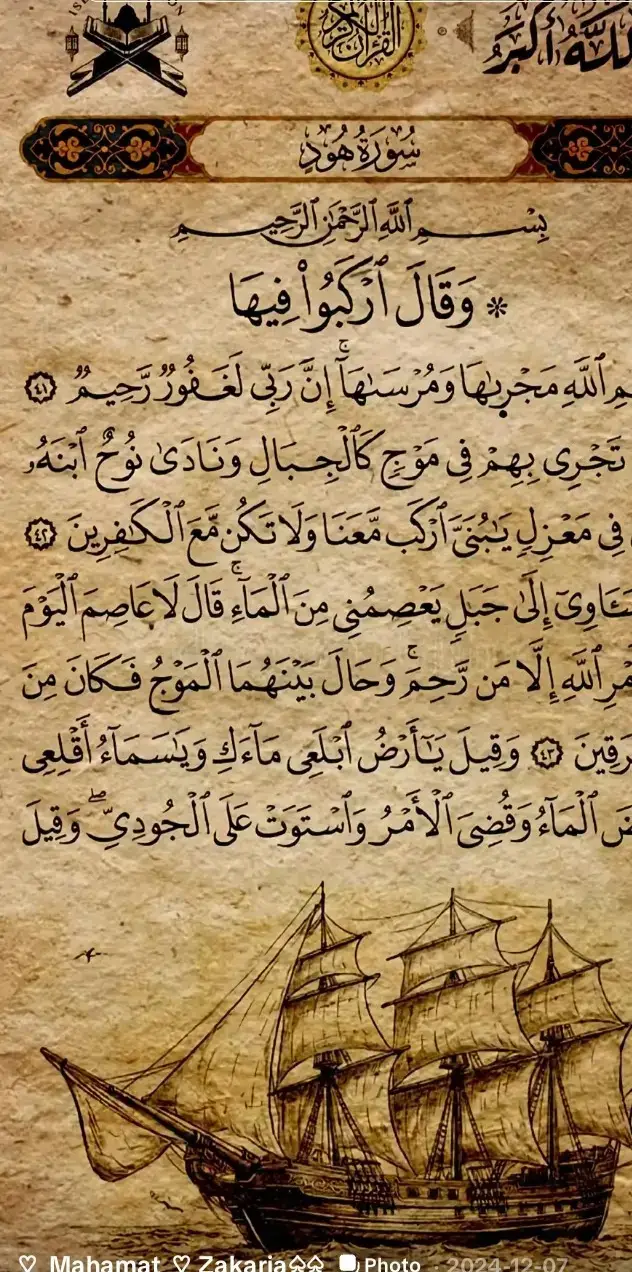 القرآن الكريم
أكبر
سُورَةُ هُودٍ
بِسْمِ ٱللَّهِ ٱلرَّحْمَٰنِ ٱلرَّحِيمِ
* وَقَالَ ٱرْكَبُوا۟ فِيهَا
ٱللَّهِ مَجْر۪ىٰهَا وَمُرْسَىٰهَآ ۚ إِنَّ رَبِّى لَغَفُورٌ رَّحِيمٌ ٤١
تَجْرِى بِهِمْ فِى مَوْجٍ كَٱلْجِبَالِ وَنَادَىٰ نُوحٌ ٱبْنَهُۥ
فِى مَعْزِلٍ يَٰبُنَىَّ ٱرْكَب مَّعَنَا وَلَا تَكُن مَّعَ ٱلْكَٰفِرِينَ ٤٢
إِلَىٰ جَبَلٍ يَعْصِمُنِى مِنَ ٱلْمَآءِ ۚ قَالَ لَا عَاصِمَ ٱلْيَوْمَ
ٱللَّهِ إِلَّا مَن رَّحِمَ ۚ وَحَالَ بَيْنَهُمَا ٱلْمَوْجُ فَكَانَ مِنَ
٤٣ وَقِيلَ يَٰٓأَرْضُ ٱبْلَعِى مَآءَكِ وَيَٰسَمَآءُ أَقْلِعِى
ٱلْمَآءُ وَقُضِىَ ٱلْأَمْرُ وَٱسْتَوَتْ عَلَى ٱلْجُودِىِّ ۖ وَقِيلَ
♡ Mahamat ♡ Zakaria♤♤ Photo · 2024-12-07